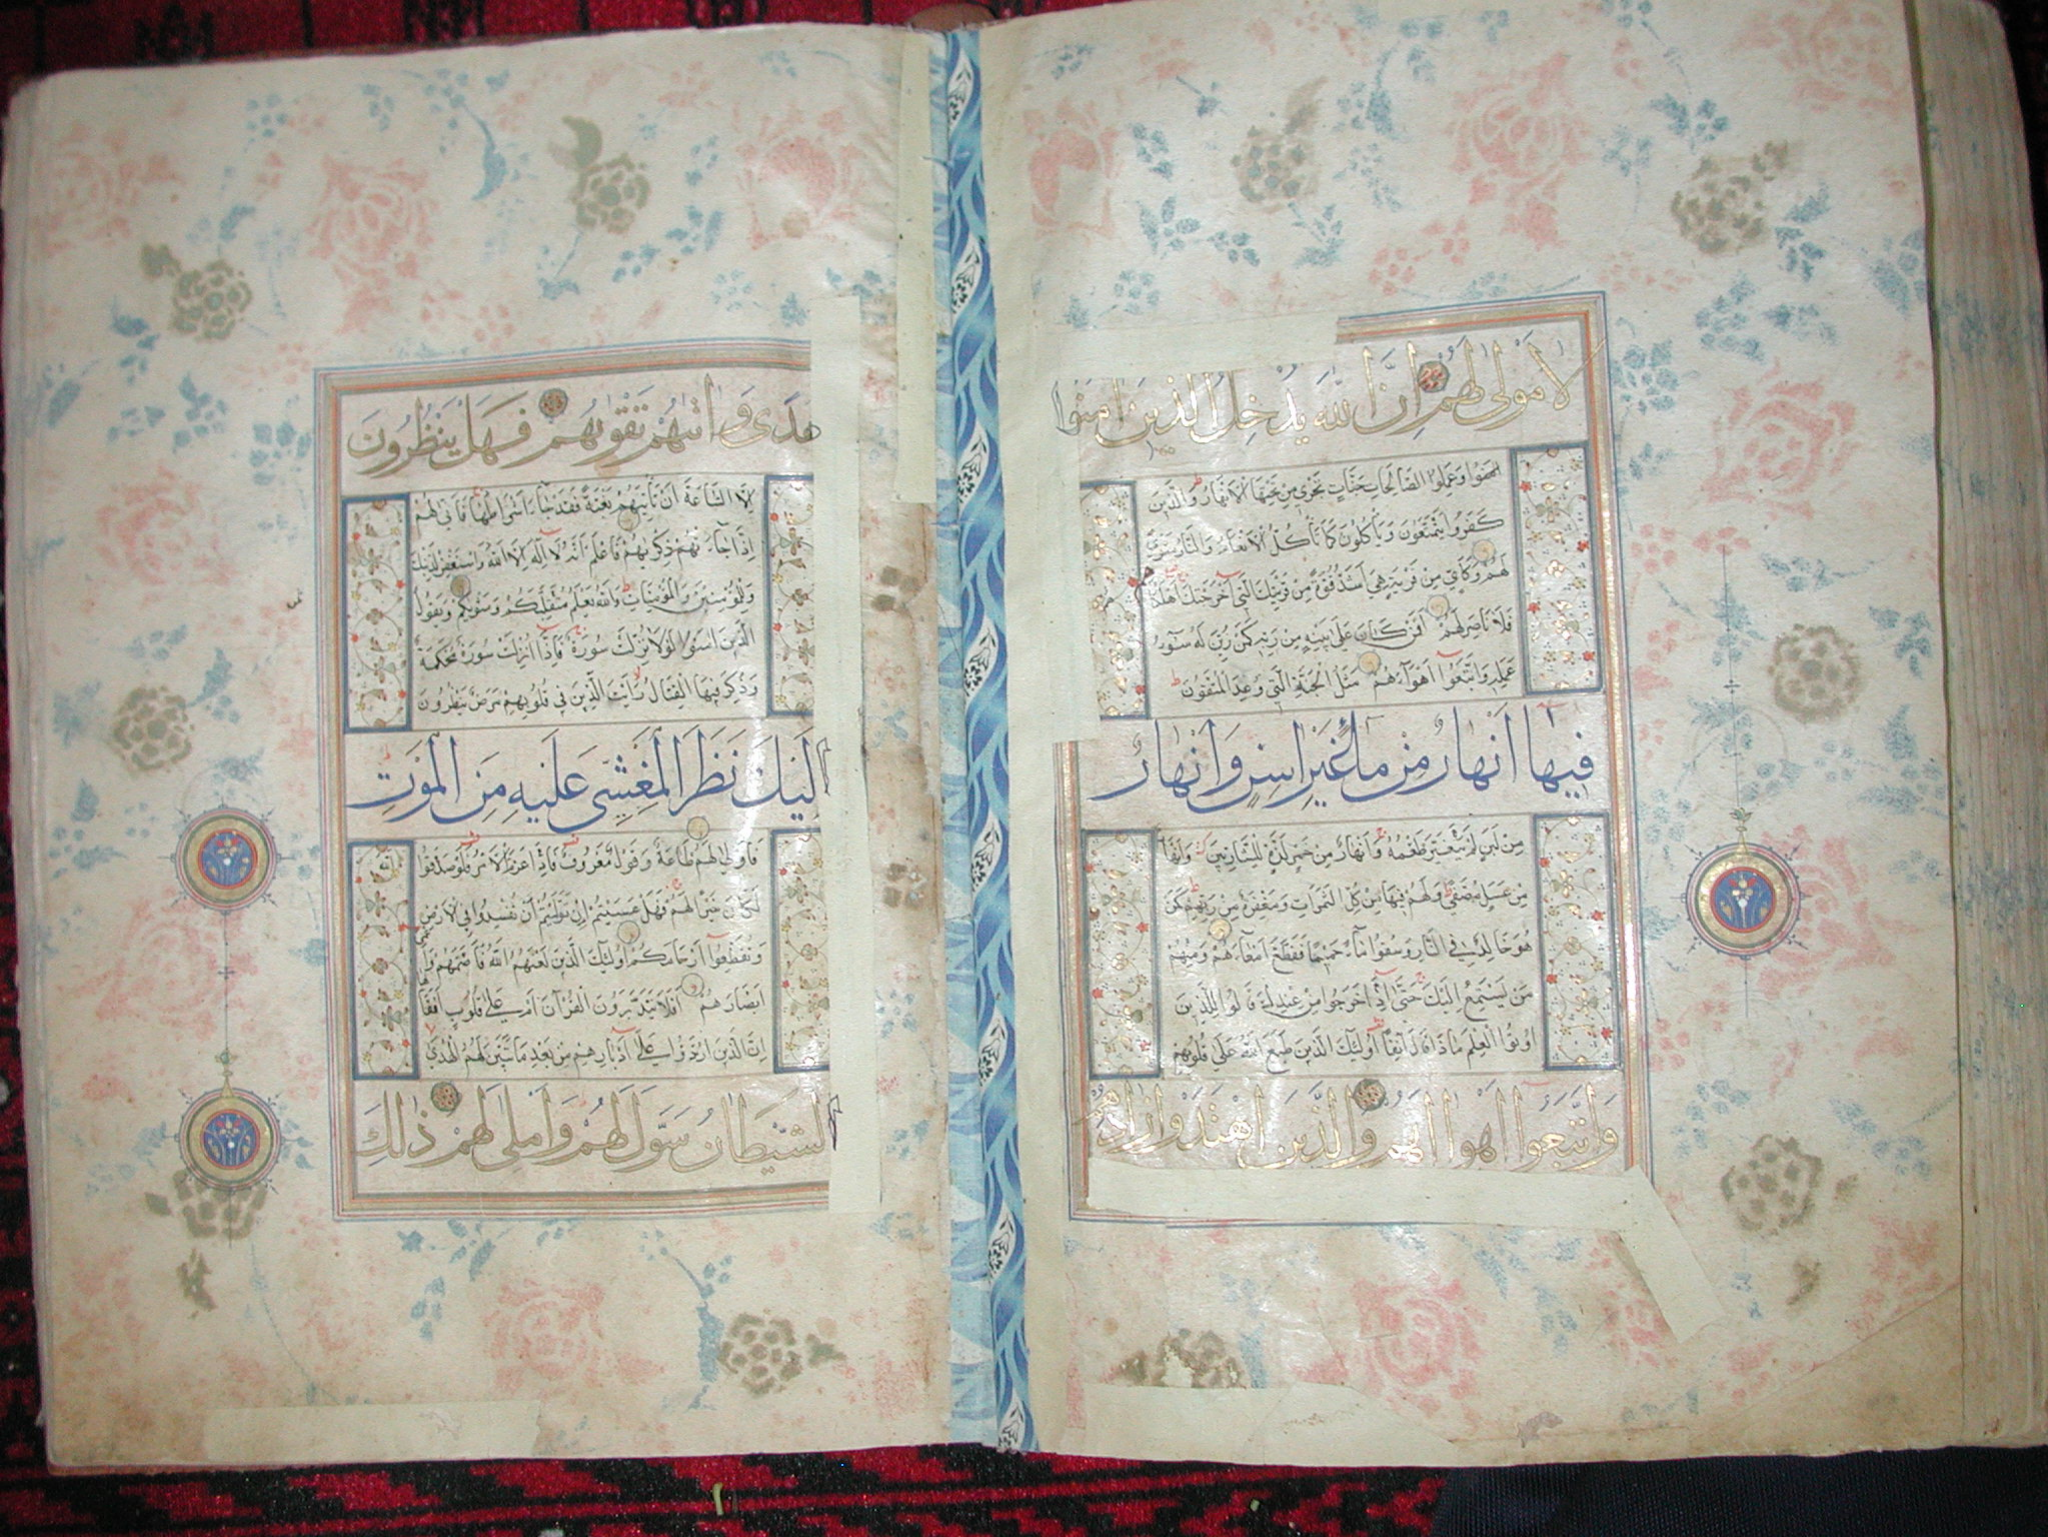 لا مولى لهم ان الله يدخل الذين امنوا
وعملوا الصالحات جنات تجري من تحتها الانهار والذين
كفروا يتمتعون ويأكلون كما تأكل الانعام والنار مثوى
لهم وكأين من قرية هي اشد قوة من قريتك التي اخرجتك اهلكنا
فلا ناصر لهم افمن كان على بينة من ربه كمن زين له سوء
عمله واتبعوا اهواءهم مثل الجنة التي وعد المتقون
فيها انهار من ماء غير اسن وانهار
من لبن لم يتغير طعمه وانهار من خمر لذة للشاربين وانها
من عسل مصفى ولهم فيها من كل الثمرات ومغفرة من ربهم كمن
هو خالد في النار وسقوا ماء حميما فقطع امعاءهم ومنهم
من يستمع اليك حتى اذا خرجوا من عندك قالوا للذين
اوتوا العلم ماذا قال انفا اولئك الذين طبع الله على قلوبهم
واتبعوا اهواءهم والذين اهتدوا زادهم
هدى واتيهم تقويهم فهل ينظرون
الا الساعة ان تأتيهم بغتة فقد جاء اشراطها فانى لهم
اذا جاءتهم ذكريهم فاعلم انه لا اله الا الله واستغفر لذنبك
وللمؤمنين والمؤمنات والله يعلم متقلبكم ومثويكم ويقول
الذين امنوا لولا نزلت سورة فاذا انزلت سورة محكمة
وذكر فيها القتال رأيت الذين في قلوبهم مرض ينظرون
اليك نظر المغشي عليه من الموت
فاولى لهم طاعة وقول معروف فاذا عزم الامر فلو صدقوا
لكان خيرا لهم فهل عسيتم ان توليتم ان تفسدوا في الارض
وتقطعوا ارحامكم اولئك الذين لعنهم الله فاصمهم وا
ابصارهم افلا يتدبرون القرآن ام على قلوب اقفا
ان الذين ارتدوا على ادبارهم من بعد ما تبين لهم الهدى
الشيطان سول لهم واملى لهم ذلك